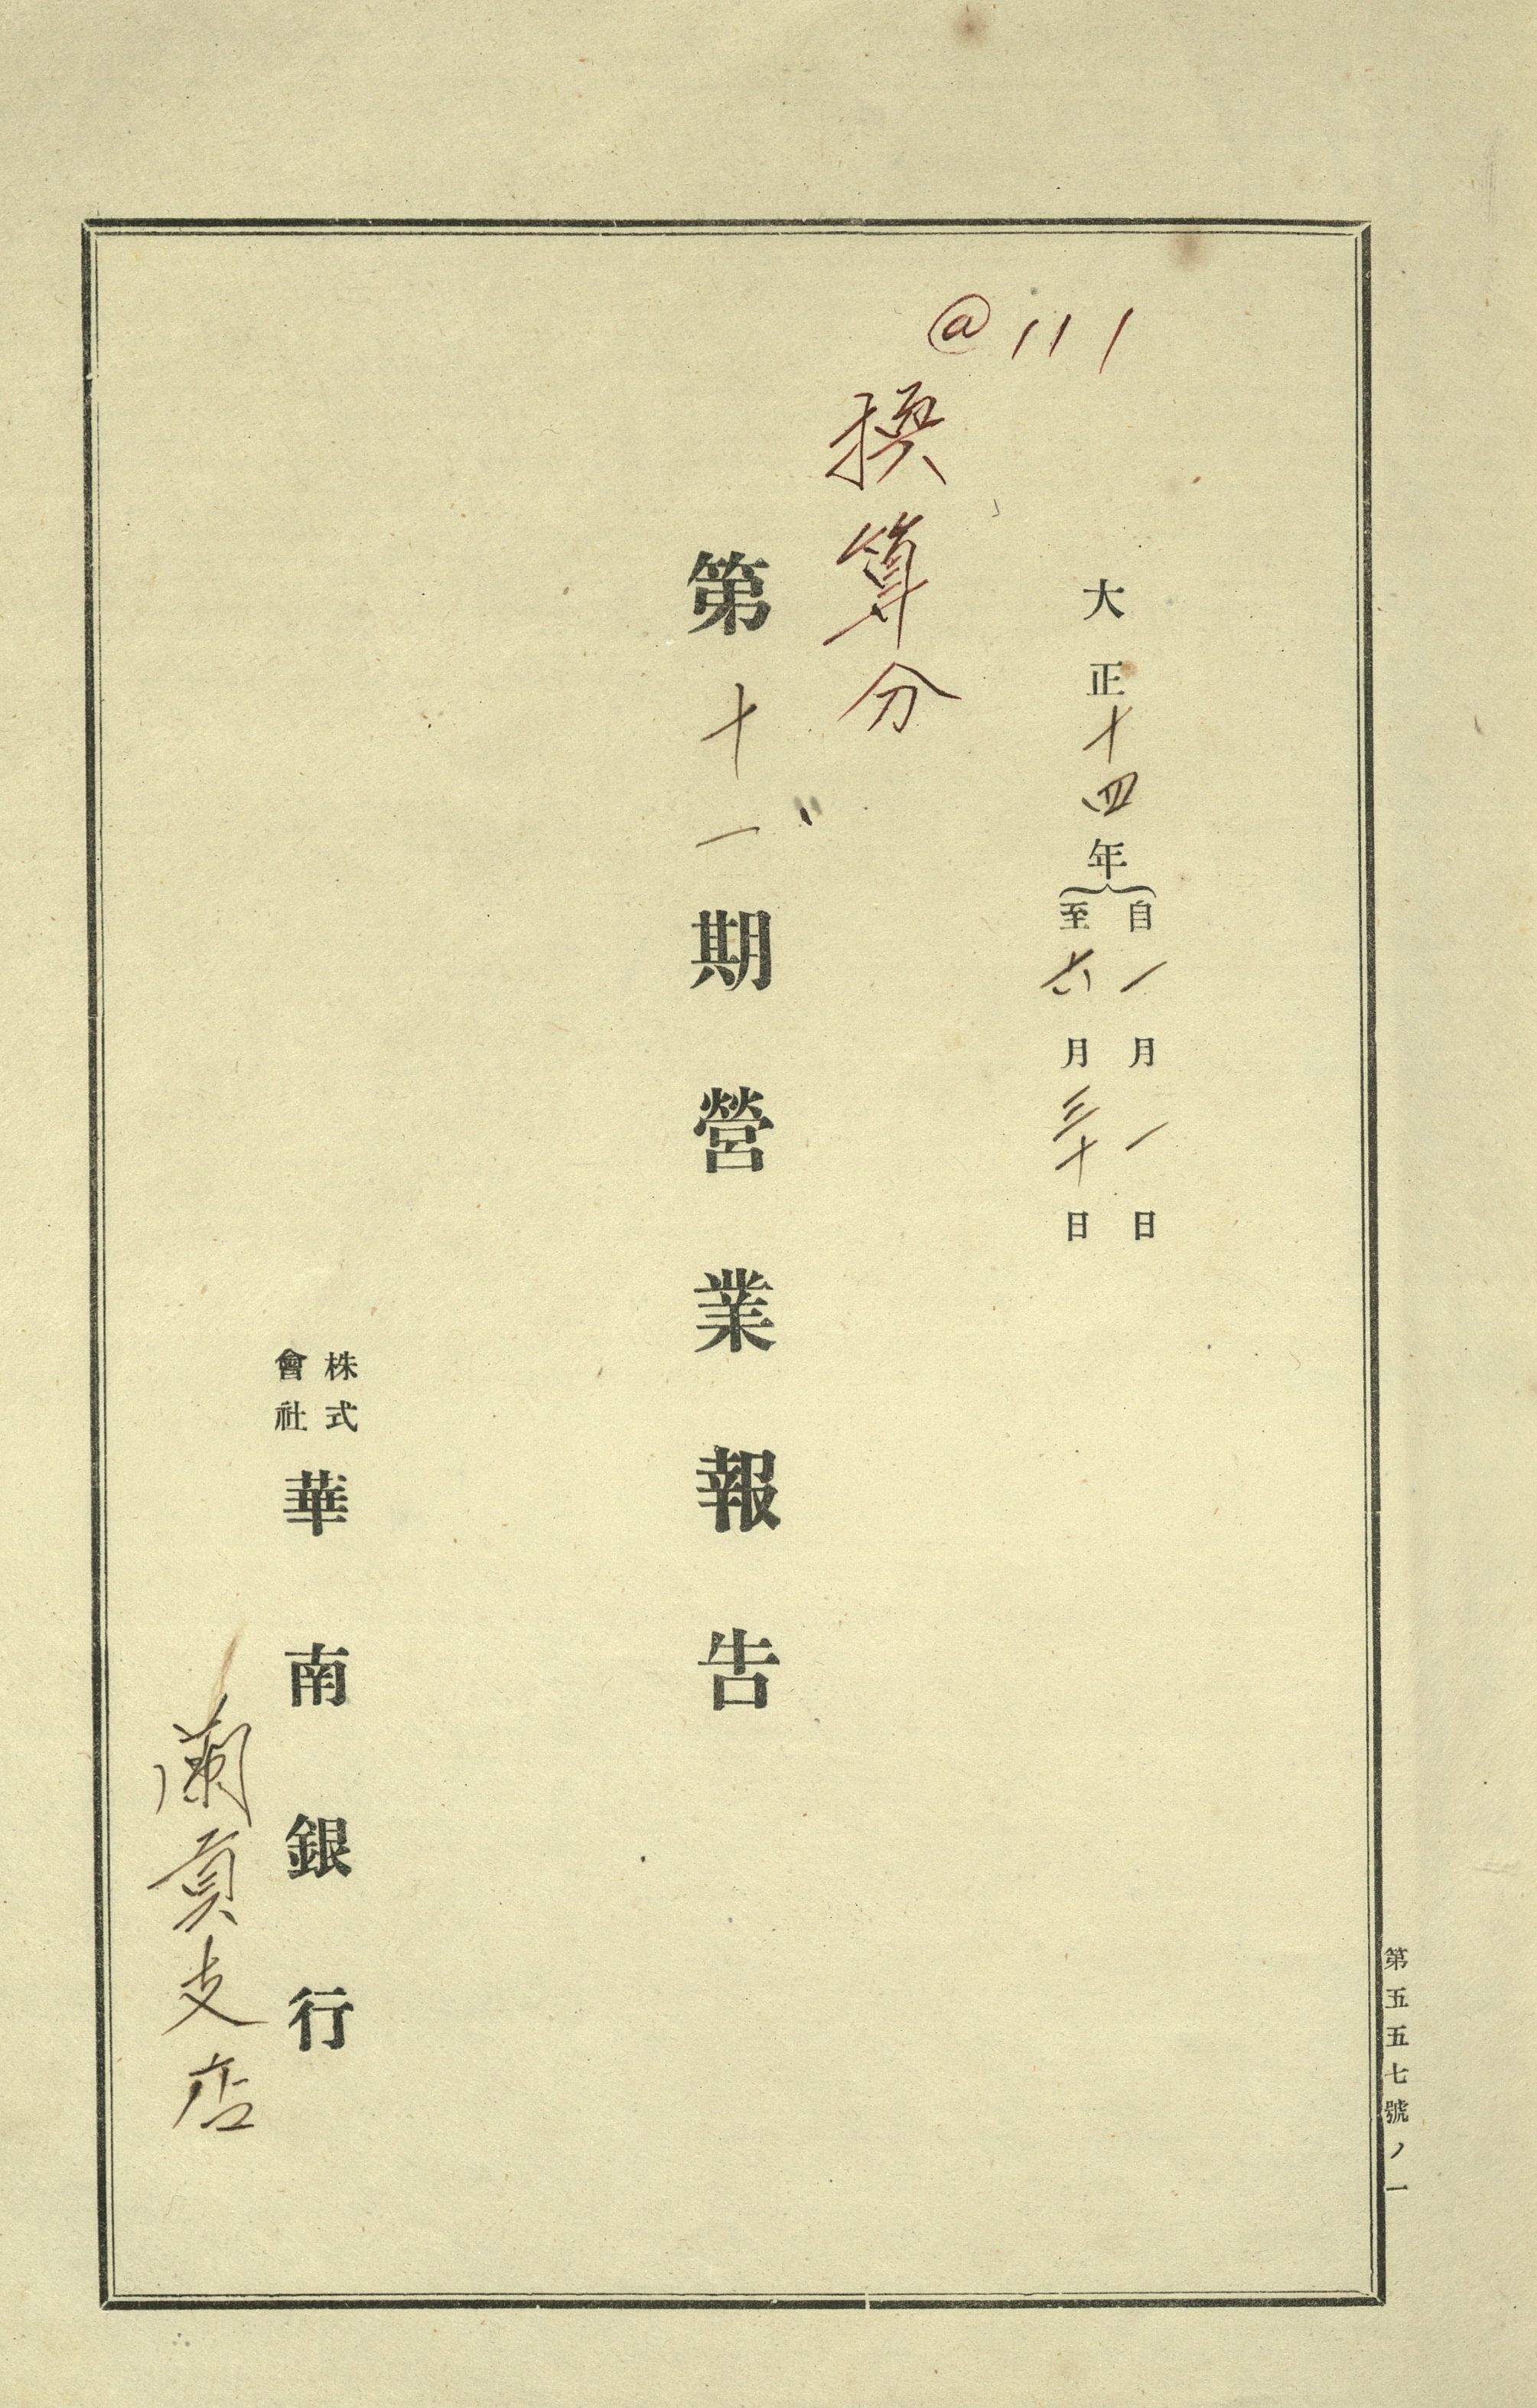 @111
換算分
大正十四年自一月一日
至六月三十日
第十一期營業報告
株式會社華南銀行
蘭貢支店
第五五七號ノ一